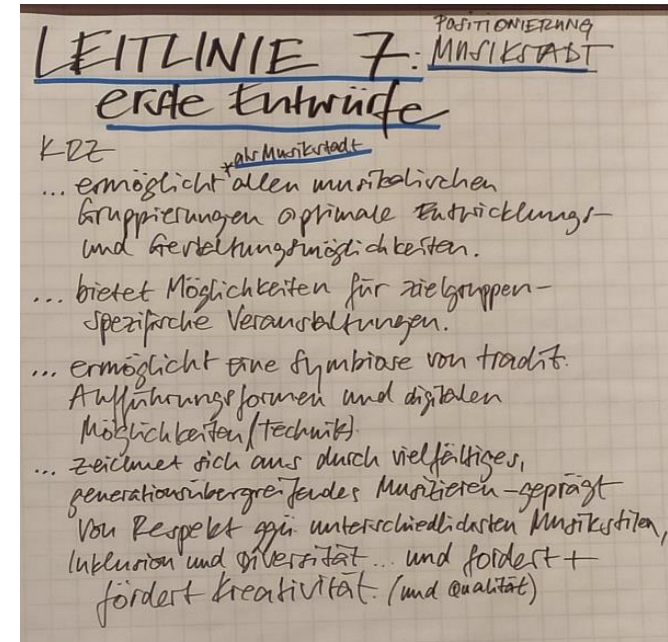 POSITIONIERUNG
LEITLINIE 7: MUSIKSTADT
erste Entwürfe
KDZ
*als Musikstadt
... ermöglicht * allen musikalischen
Gruppierungen optimale Entwicklungs-
und Gestaltungsmöglichkeiten.
... bietet Möglichkeiten für zielgruppen-
spezifische Veranstaltungen.
... ermöglicht eine Symbiose von tradit.
Aufführungsformen und digitalen
Möglichkeiten (Technik).
... zeichnet sich aus durch vielfältiges,
generationsübergreifendes Musizieren - geprägt
von Respekt ggü. unterschiedlichsten Musikstilen,
Inklusion und Diversität ... und fordert +
fördert Kreativität. (und Qualität)